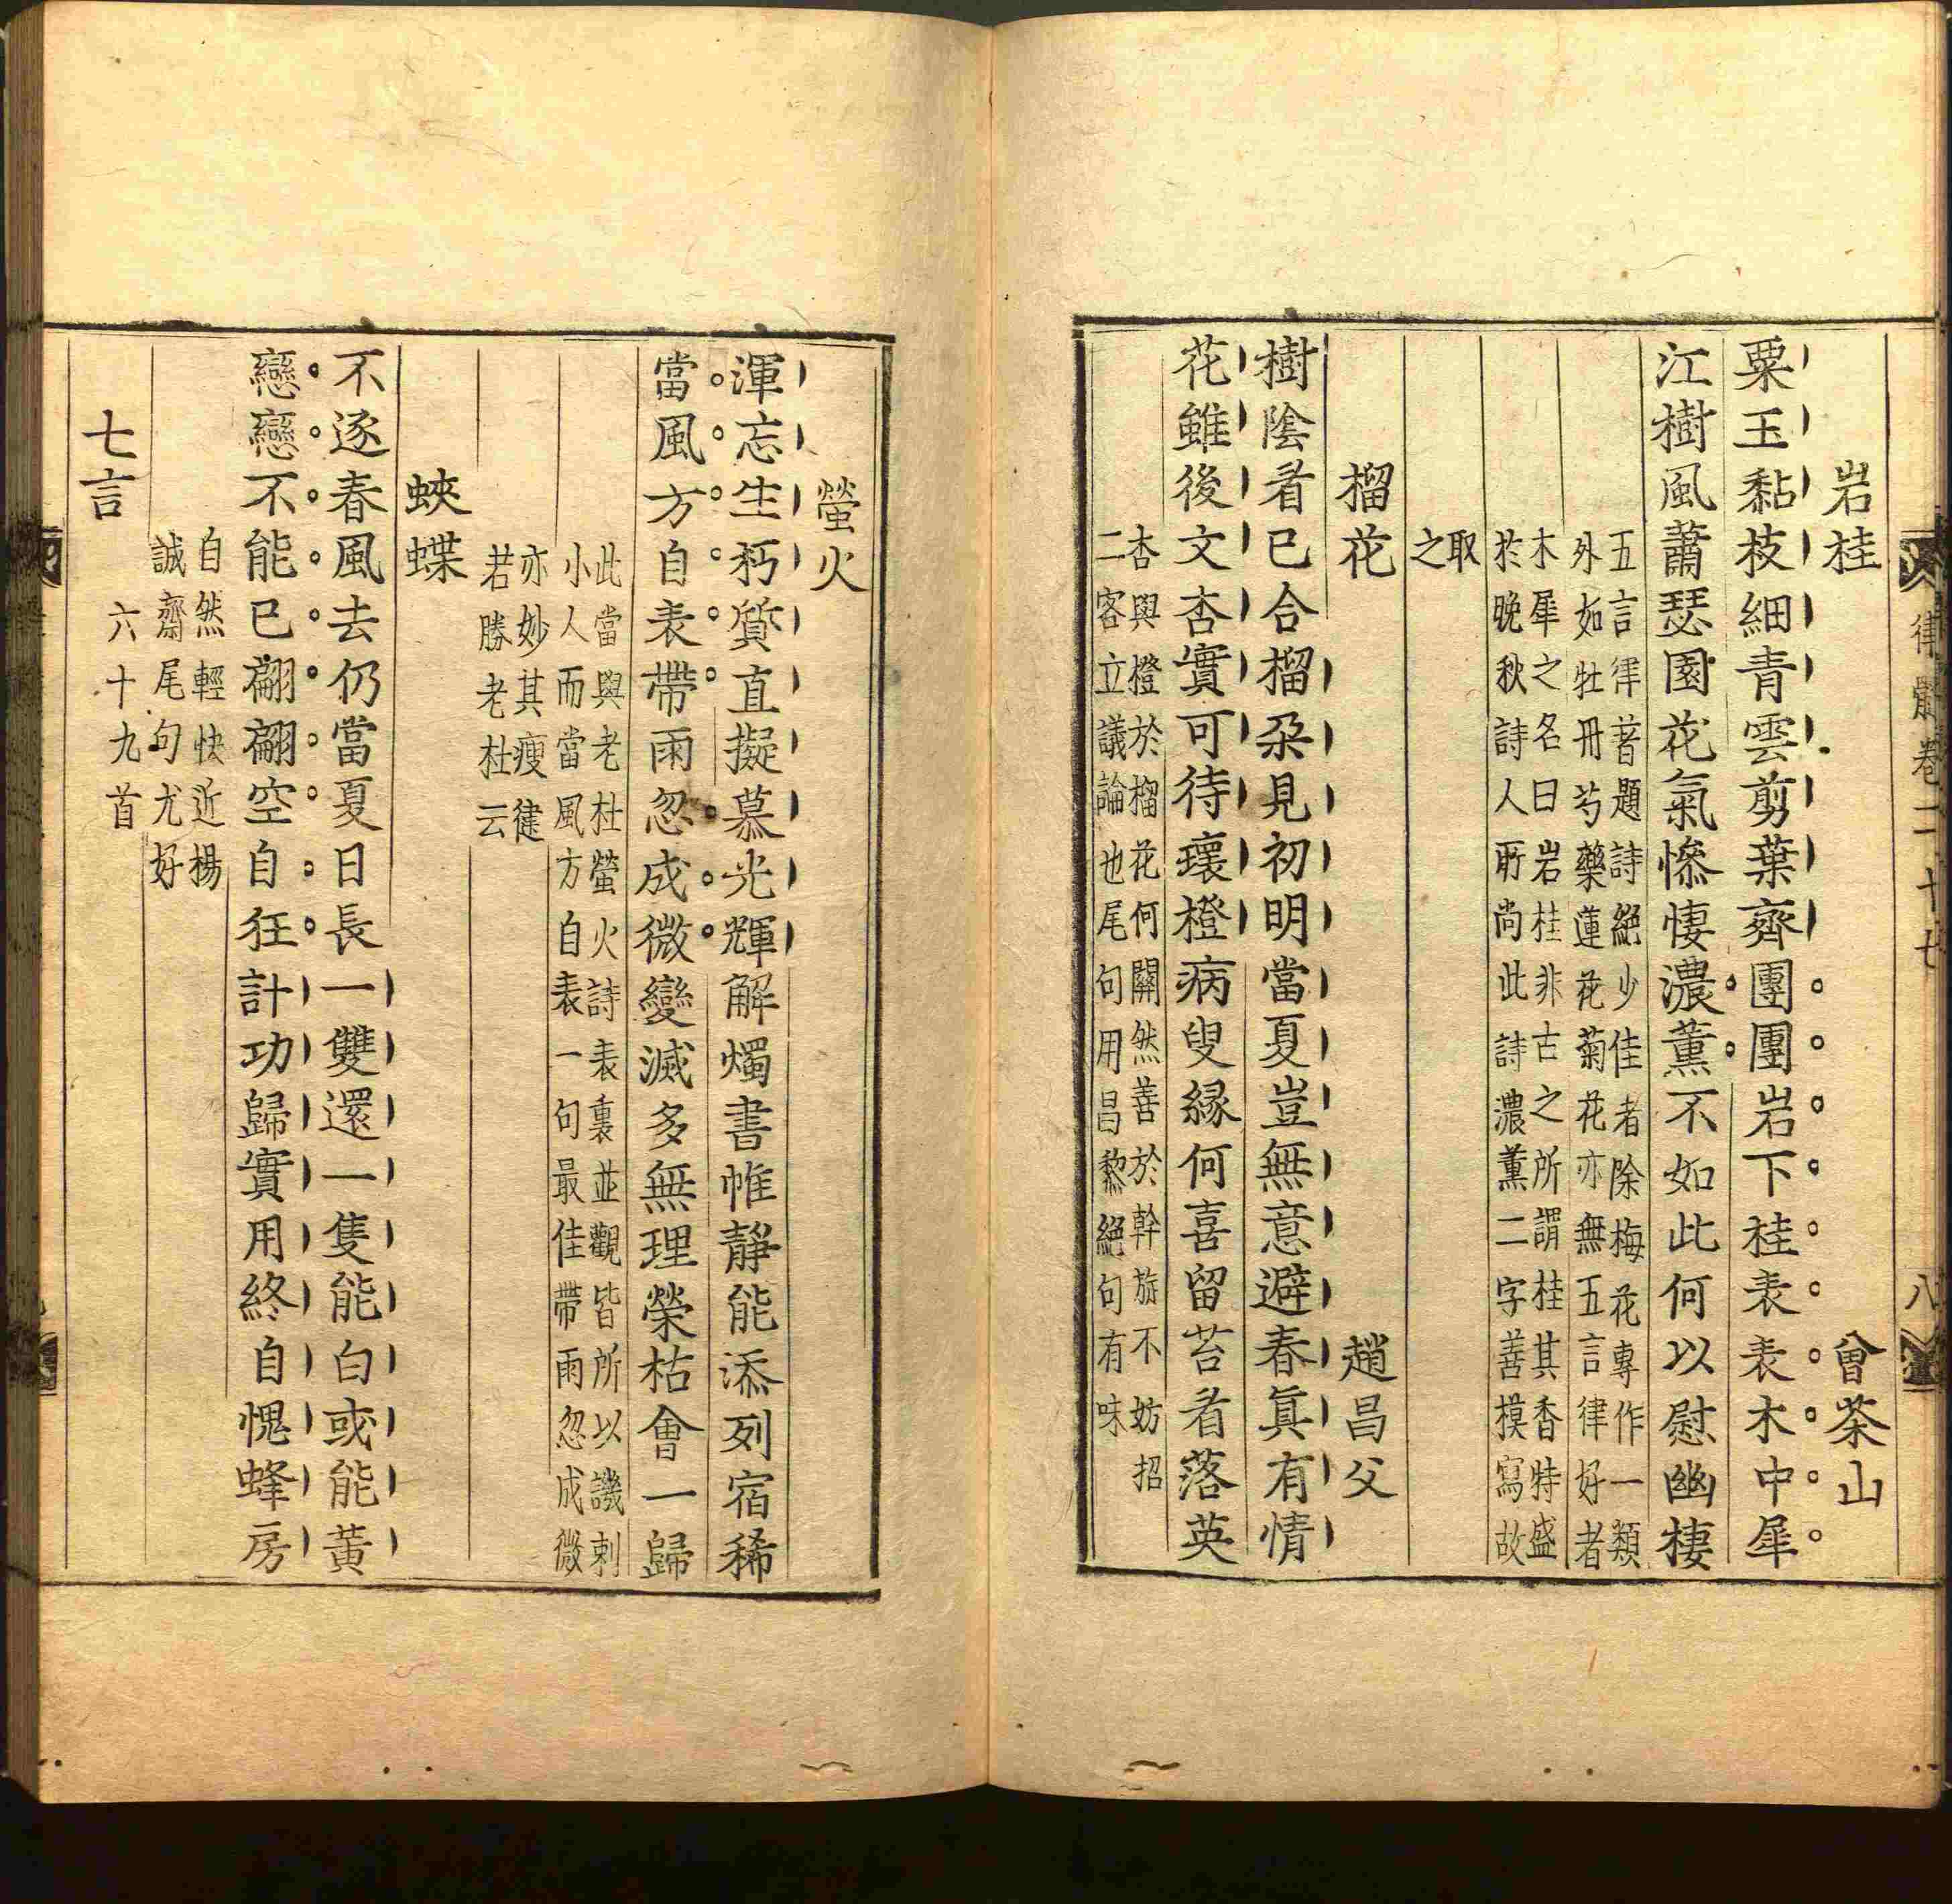 律髓卷二十七
八
岩桂 曾茶山
粟玉黏枝細青雲剪葉齊團團岩下桂表表木中犀
江樹風蕭瑟園花氣慘悽濃薰不如此何以慰幽棲
五言律着題詩絕少佳者除梅花專作一類
外如牡丹芍藥蓮花菊花亦無五言律好者
木犀之名曰岩桂非古之所謂桂其香特盛
於晚秋詩人所尚此詩濃薰二字善模寫故
取
之
榴花 趙昌父
樹陰看已合榴朵見初明當夏豈無意避春真有情
花雖後文杏實可待瓌橙病叟緣何喜留苔看落英
杏與橙於榴花何關然善於幹旋不妨招
二客立議論也尾句用昌黎絕句有味
螢火
渾忘生朽質直擬慕光輝解燭書帷靜能添列宿稀
當風方自表帶雨忽成微變滅多無理榮枯會一歸
此當與老杜螢火詩表裏並觀皆所以譏刺
小人而當風方自表一句最佳帶雨忽成微
亦妙其瘦健
若勝老杜云
蛺蝶
不逐春風去仍當夏日長一雙還一隻能白或能黃
戀戀不能已翩翩空自狂計功歸實用終自愧蜂房
自然輕快近楊
誠齋尾句尤好
七言 六十九首